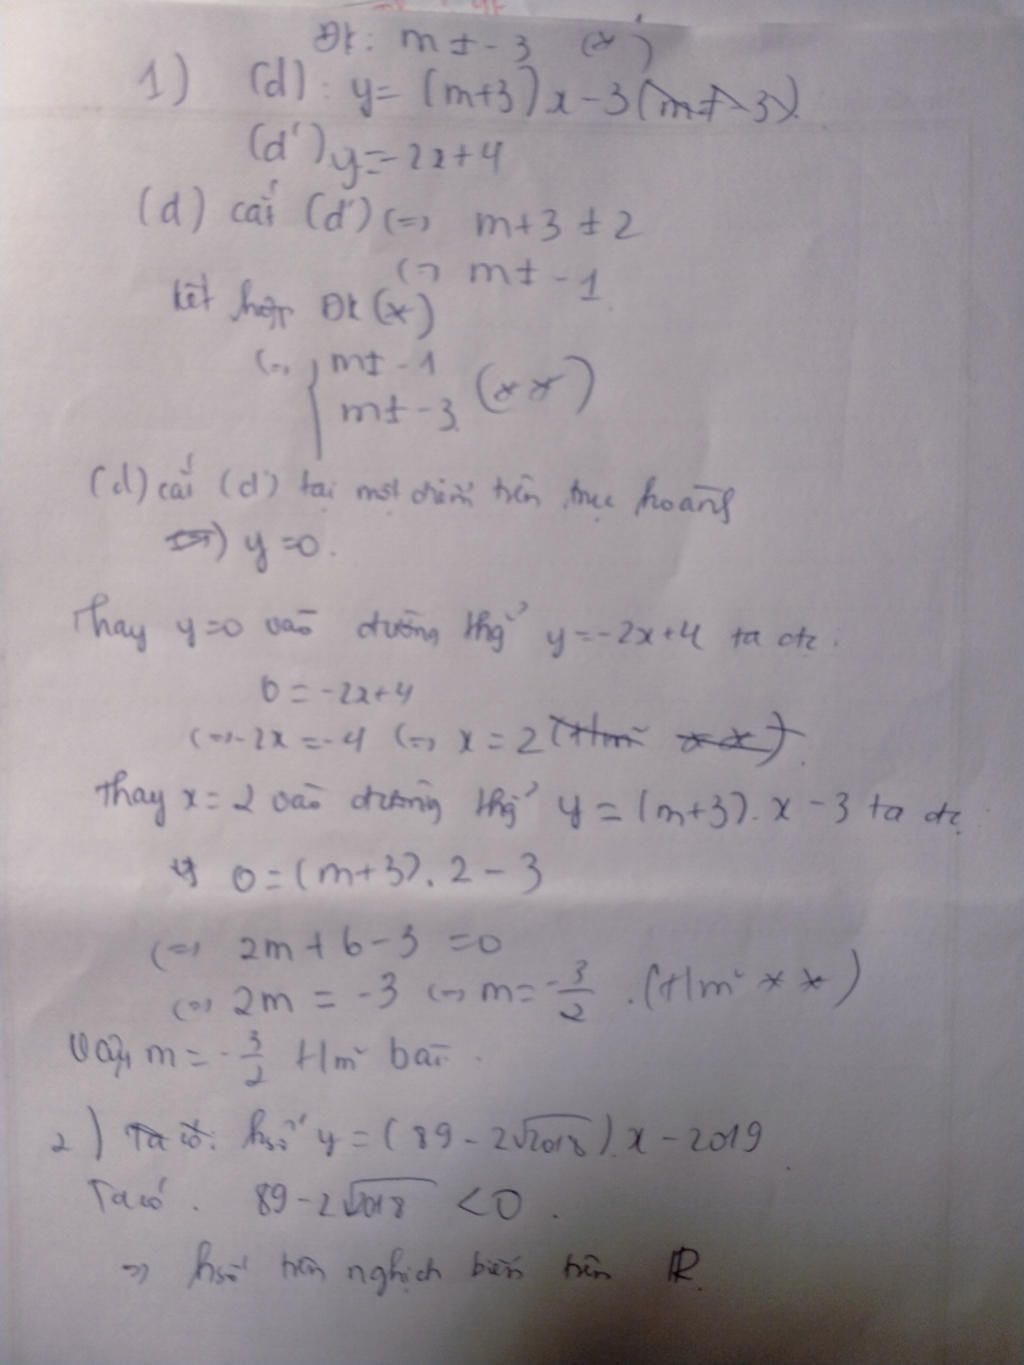 Đk: m ≠ -3 (*)
1) (d): y = (m+3)x - 3 (m ≠ -3)
(d') y = -2x+4
(d) cắt (d') (=) m+3 ≠ 2
(=) m ≠ -1
kết hợp Đk (*)
(=) { m ≠ -1
m ≠ -3 (**)
(d) cắt (d') tại một điểm trên trục hoành
=) y = 0.
Thay y=0 vào đường thg̉ y = -2x+4 ta đc:
0 = -2x+4
(=) -2x = -4 (=) x = 2 (t/m **).
Thay x = 2 vào đường thg̉ y = (m+3). x - 3 ta đc
0 = (m+3). 2 - 3
(=) 2m + 6 - 3 = 0
(=) 2m = -3 (=) m = -3/2 . (t/m **)
Vậy m = -3/2 t/m bài.
2) Ta có: hsố y = (89 - 2√2018). x - 2019
Ta có. 89 - 2√2018 < 0.
=) hsố trên nghịch biến trên R.